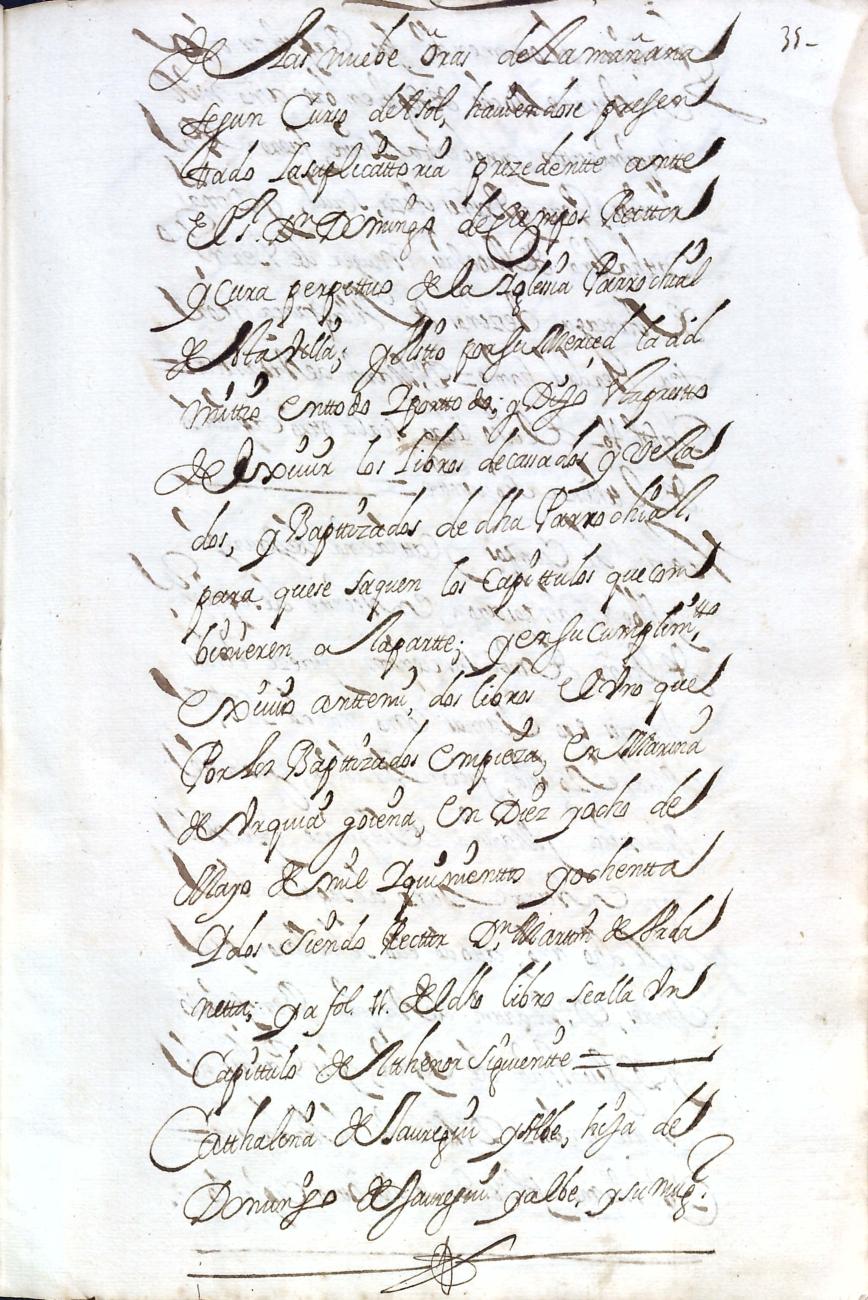 35-
de las nuebe oras de la mañana
segun Curso del sol, haviendose presen
ttado la suplicattoria prezedentte antte
El Sr. Dn. Domingo de Campos Recttor
y Cura perpettuo de la Iglesia Parrochial
de esta Villa; y visto por su Merced la ad
mittio en ttodo y por ttodo; y Dijo
de exivir los libros de casados y Vela
dos, y Baptizados de dha Parrochial.
para que se saquen los Capittulos que com
binieren a la partte; y en su cumplimtto
exivio antte mi, dos libros el Uno que
Por los Baptizados empieza, en Marina
de Urquia goiena, en Diez y ocho de
Mayo de mil y quinienttos y ochentta
y dos siendo Recttor Dn Martin de
netta; y a fol. 11. del dho libro se alla Un
Capittulo del tthenor siguientte =
Catthalina de Jauregui y Albe, hija de
Domingo de Jauregui y albe, y su mugr.